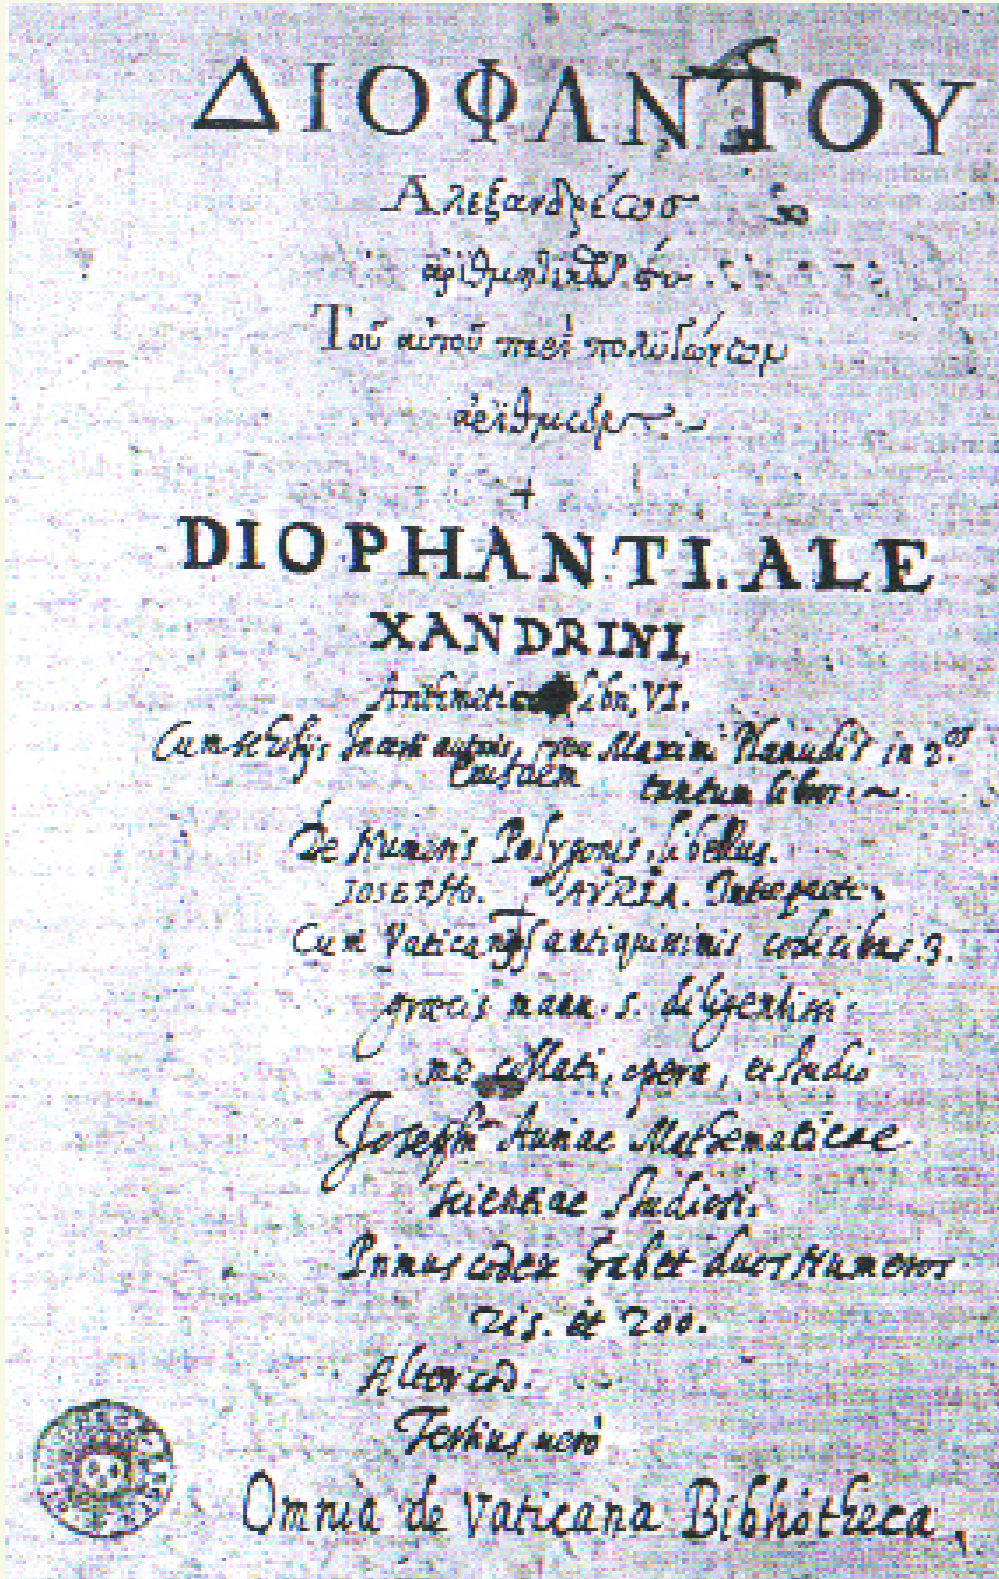 ΔΙΟΦΑΝΤΟΥ
Αλεξανδρέωσ
Τοῦ αὐτοῦ περὶ πολυγώνωμ
ἀριθμῶμ
DIOPHANTI. ALE
XANDRINI,
libri, VI.
Cum scholijs Maximi Planudis in 2.os
Eiusdem tantum libros
De Numeris Polygonis, libellus.
IOSEPHO. AVRIA. Interprete
Cum Vaticanis antiquissimis codicibus. 3.
græcis manu. s. diligentissi
me collati, opera, et studio
Josephi Auriae Mathematicae
scientiae studiosi.
Primus codex habet duos Numeros
et 200.
Alter cod.
Tertius uero
Omnia de Vaticana Bibliotheca,